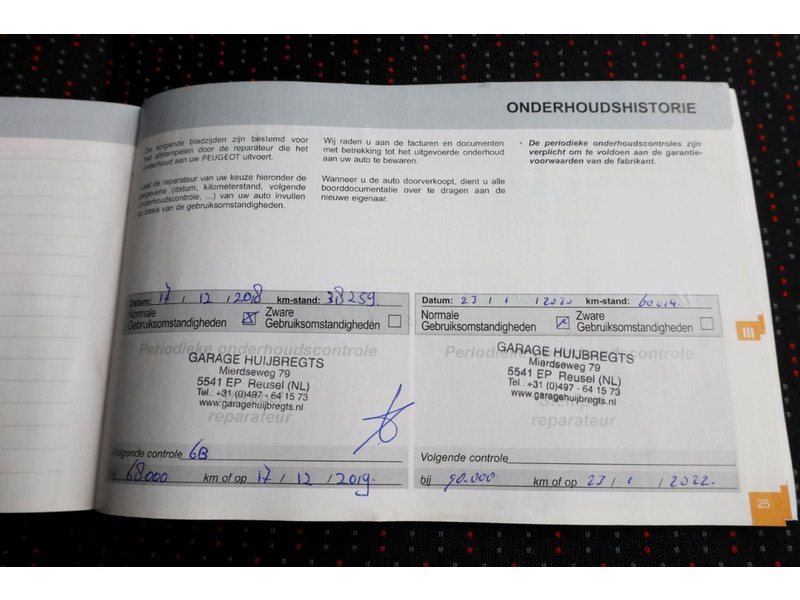 ONDERHOUDSHISTORIE
De volgende bladzijden zijn bestemd voor
het afstempelen door de reparateur die het
onderhoud aan uw PEUGEOT uitvoert.
Laat de reparateur van uw keuze hieronder de
gegevens (datum, kilometerstand, volgende
onderhoudscontrole, ...) van uw auto invullen
op basis van de gebruiksomstandigheden.
Wij raden u aan de facturen en documenten
met betrekking tot het uitgevoerde onderhoud
aan uw auto te bewaren.
Wanneer u de auto doorverkoopt, dient u alle
boorddocumentatie over te dragen aan de
nieuwe eigenaar.
• De periodieke onderhoudscontroles zijn
verplicht om te voldoen aan de garantie-
voorwaarden van de fabrikant.
Datum: 17 / 12 / 2018 km-stand: 38259
Normale
Gebruiksomstandigheden
Zware
Gebruiksomstandigheden
Periodieke onderhoudscontrole
GARAGE HUIJBREGTS
Mierdseweg 79
5541 EP Reusel (NL)
Tel.: +31 (0)497 - 64 15 73
www.garagehuijbregts.nl
reparateur
Volgende controle 6B
68000 km of op 17 / 12 / 2019
Datum: 23 / 1 / 2020 km-stand:
Normale
Gebruiksomstandigheden
Zware
Gebruiksomstandigheden
Periodieke onderhoudscontrole
GARAGE HUIJBREGTS
Mierdseweg 79
5541 EP Reusel (NL)
Tel.: +31 (0)497 - 64 15 73
www.garagehuijbregts.nl
Stempel
reparateur
Volgende controle
bij 90.000 km of op 23 / 1 / 2022.
III
25